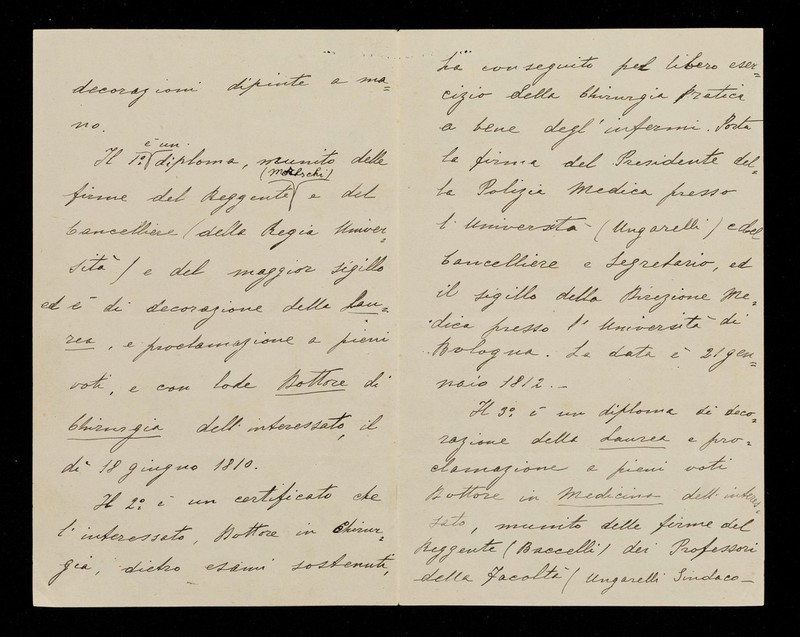 decorazioni dipinte a ma=
no.
è un
Il 1º diploma, munito delle
(Moreschi)
firme del Reggente e del
Cancelliere (della Regia Univer=
sità) e del maggior sigillo
ed è di decorazione della Lau=
rea, e proclamazione a pieni
voti, e con lode Dottore di
Chirurgia dell'interessato, il
dì 18 giugno 1810.
Il 2º è un certificato che
l'interessato, Dottore in Chirur=
gia, dietro esami sostenuti,
ha conseguito pel libero eser=
cizio della Chirurgia pratica
a bene degl'infermi. Porta
la firma del Presidente del=
la Polizia Medica presso
l'Università (Ungarelli) e del
Cancelliere e Segretario, ed
il sigillo della Direzione Me=
dica presso l'Università di
Bologna. La data è 21 gen=
naio 1812.-
Il 3º è un diploma di deco=
razione della Laurea e pro=
clamazione a pieni voti
Dottore in Medicina dell'interes=
sato, munito delle firme del
Reggente (Baccelli) dei Professori
della Facoltà (Ungarelli Sindaco-